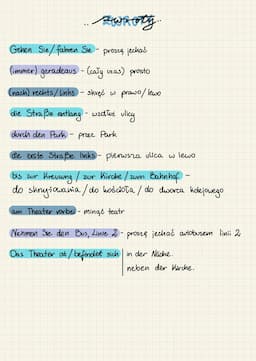 ..zwroty..
Gehen Sie / fahren Sie - proszę jechać
(immer) geradeaus - (cały czas) prosto
(nach) rechts / links - skręć w prawo / lewo
die Straße entlang - wzdłuż ulicy
durch den Park - przez Park
die erste Straße links - pierwsza ulica w lewo
bis zur Kreuzung / zur Kirche / zum Bahnhof -
do skrzyżowania / do kościoła / do dworca kolejowego
am Theater vorbei - minąć teatr
Nehmen Sie den Bus, Linie 2 - proszę jechać autobusem linii 2
Das Theater ist / befindet sich | in der Nähe.
neben der Kirche.